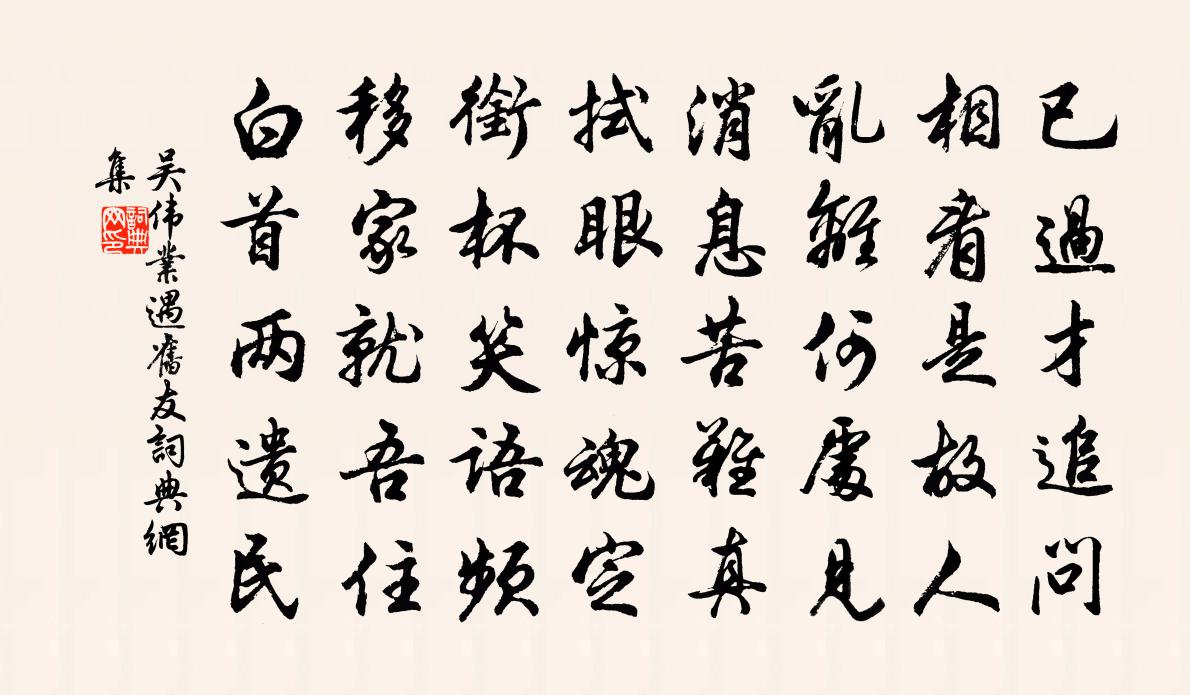 已過才追问
相看是故人
亂離何處見
消息苦難真
拭眼惊魂定
銜杯笑语頻
移家就吾住
白首两遗民
吴伟業遇舊友詞典網
集
詞典
网印